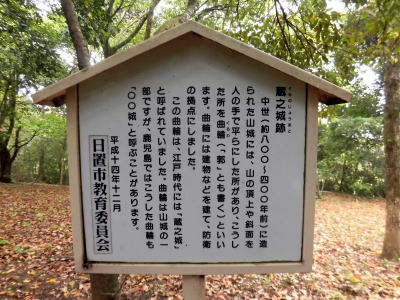 蔵之城跡
くらのじょうあと
中世（約八〇〇～四〇〇年前）に造
られた山城には、山の頂上や斜面を
人の手で平らにした所があり、こうし
た所を曲輪（「郭」とも書く）といい
くるわ
ます。曲輪には建物などを建て、防衛
の拠点にしました。
この曲輪は、江戸時代には「蔵之城」
と呼ばれていました。曲輪は山城の一
部ですが、鹿児島ではこうした曲輪も
「〇〇城」と呼ぶことがあります。
平成十四年十二月
日置市教育委員会